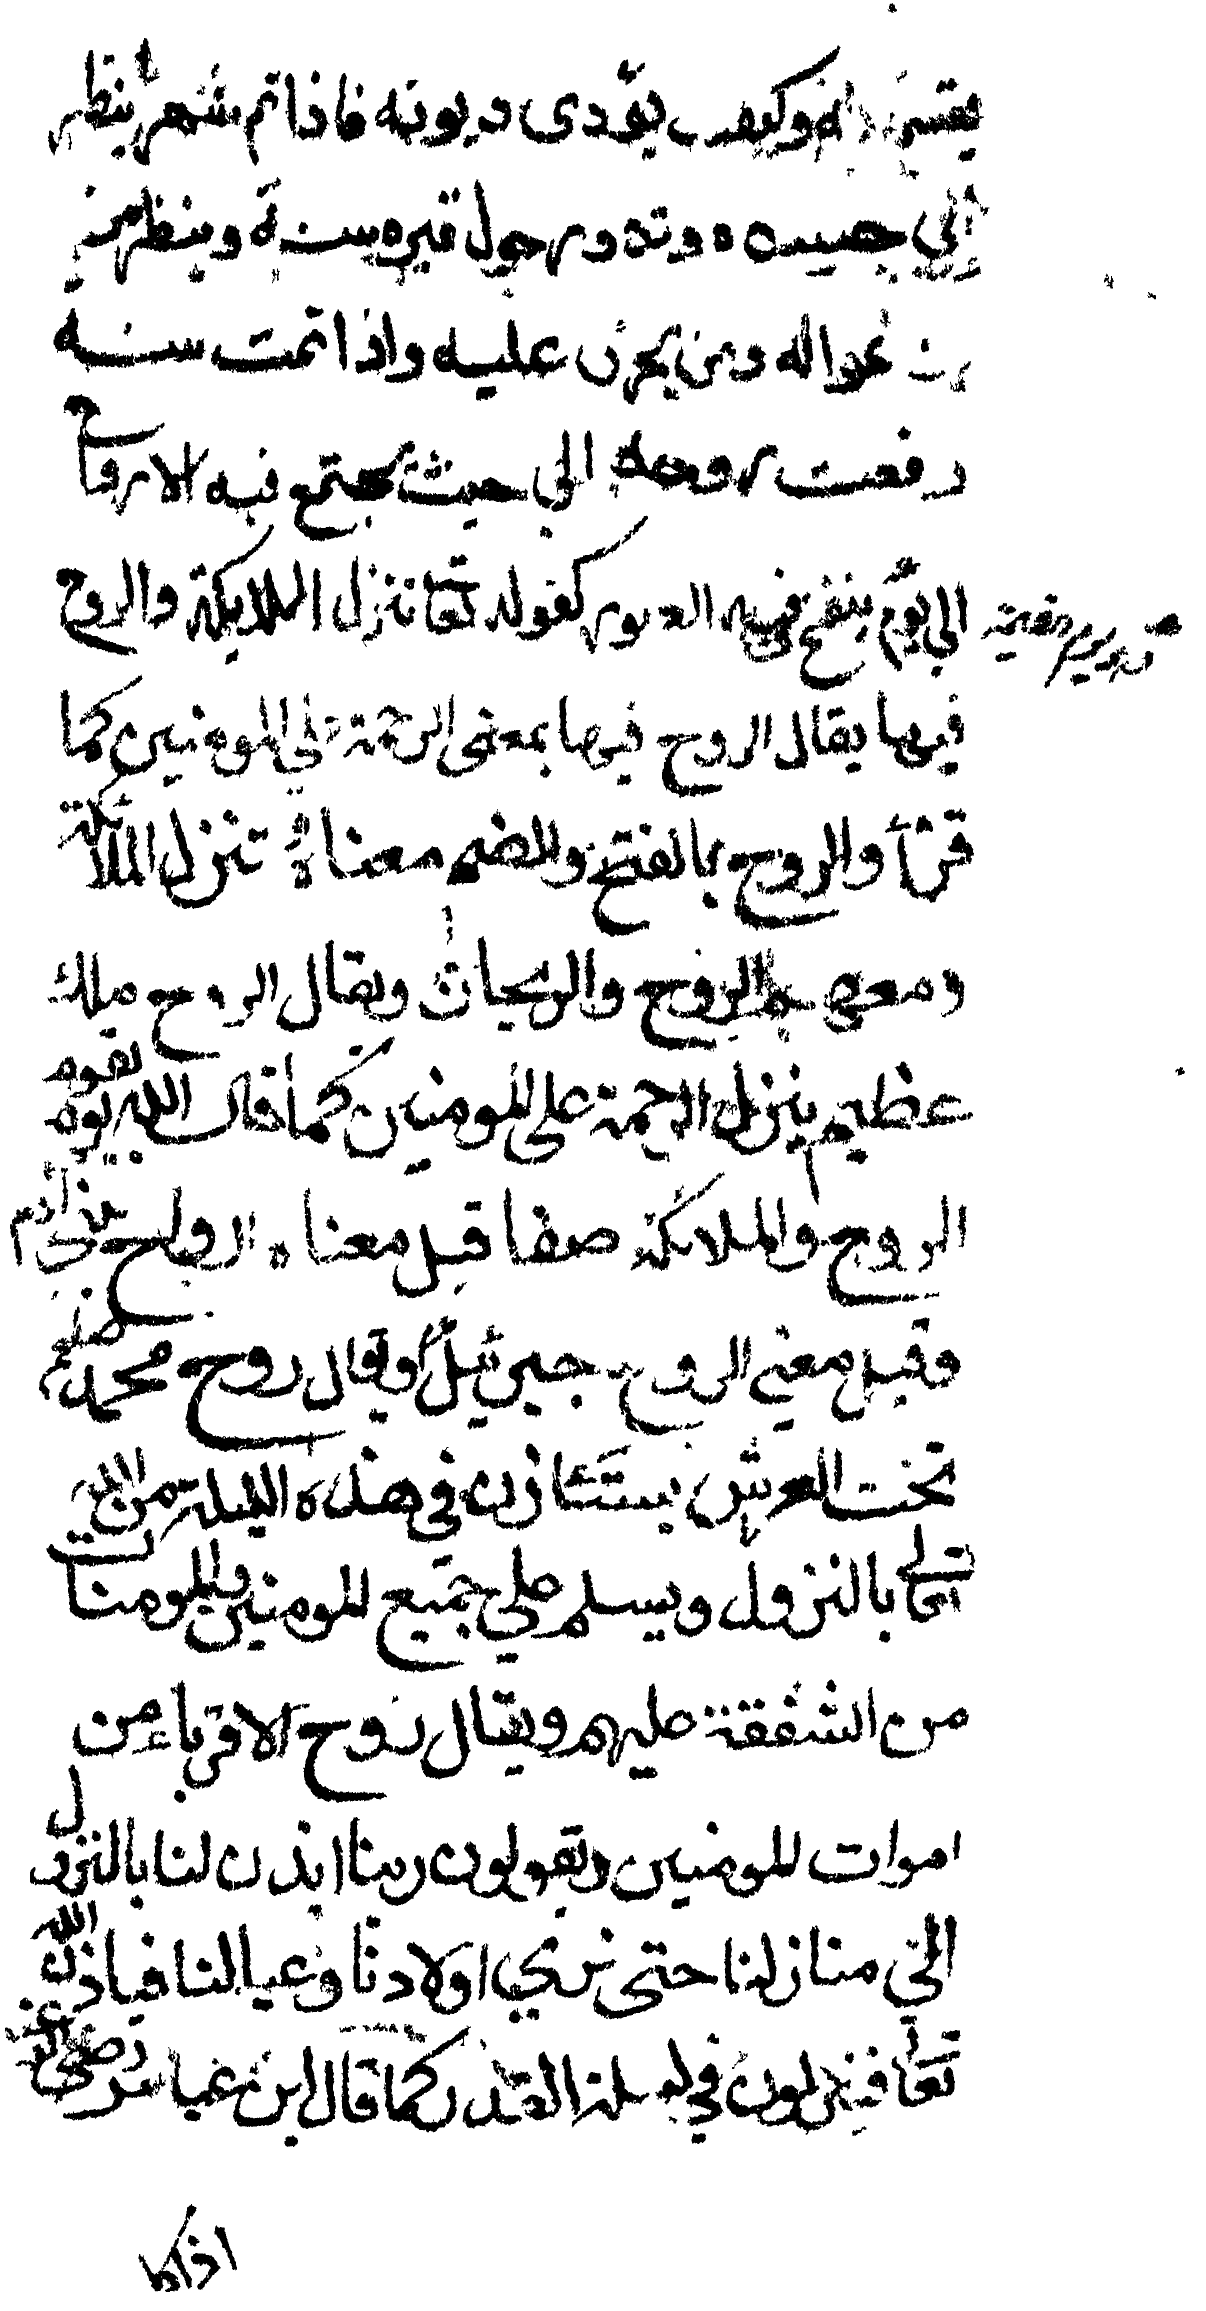 يقسم ماله وكيف يؤدى ديونه فاذا تم شهر ينظر
إلي جسده وتدور حول قبره سنة وينظر من
يدعوا له ومن يحزن عليه واذا تمت سنة
رفعت روحه الي حيث يجتمع فيه الارواح
الي يوم ينفخ فيه الصور كقوله تعا تنزل الملايكة والروح
فيها يقال الروح فيها بمعنى الرحمة علي المومنين كما
قرئ والروح بالفتح والضم معناه تنزل الملائكة
ومعهم الروح والريحان ويقال الروح ملك
عظيم ينزل الرحمة على المومنين كما قال الله يوم يقوم
الروح والملائكة صفا قيل معناه الرواح بني آدم
وقيل معني الروح جبرئيل ويقال روح محمد صلعم
تحت العرش يستئاذن في هذه الليلة من الله
تعالى بالنزول ويسلم علي جميع المومنين والمومنات
من الشفقة عليهم ويقال روح الاقرباء من
اموات المومنين ويقولون ربنا ايذن لنا بالنزول
الي منازلنا حتى نري اولادنا وعيالنا فياذن الله
تعا فينزلون في ليلة القدر كما قال ابن عباس رضي الله عنه
اذا كا